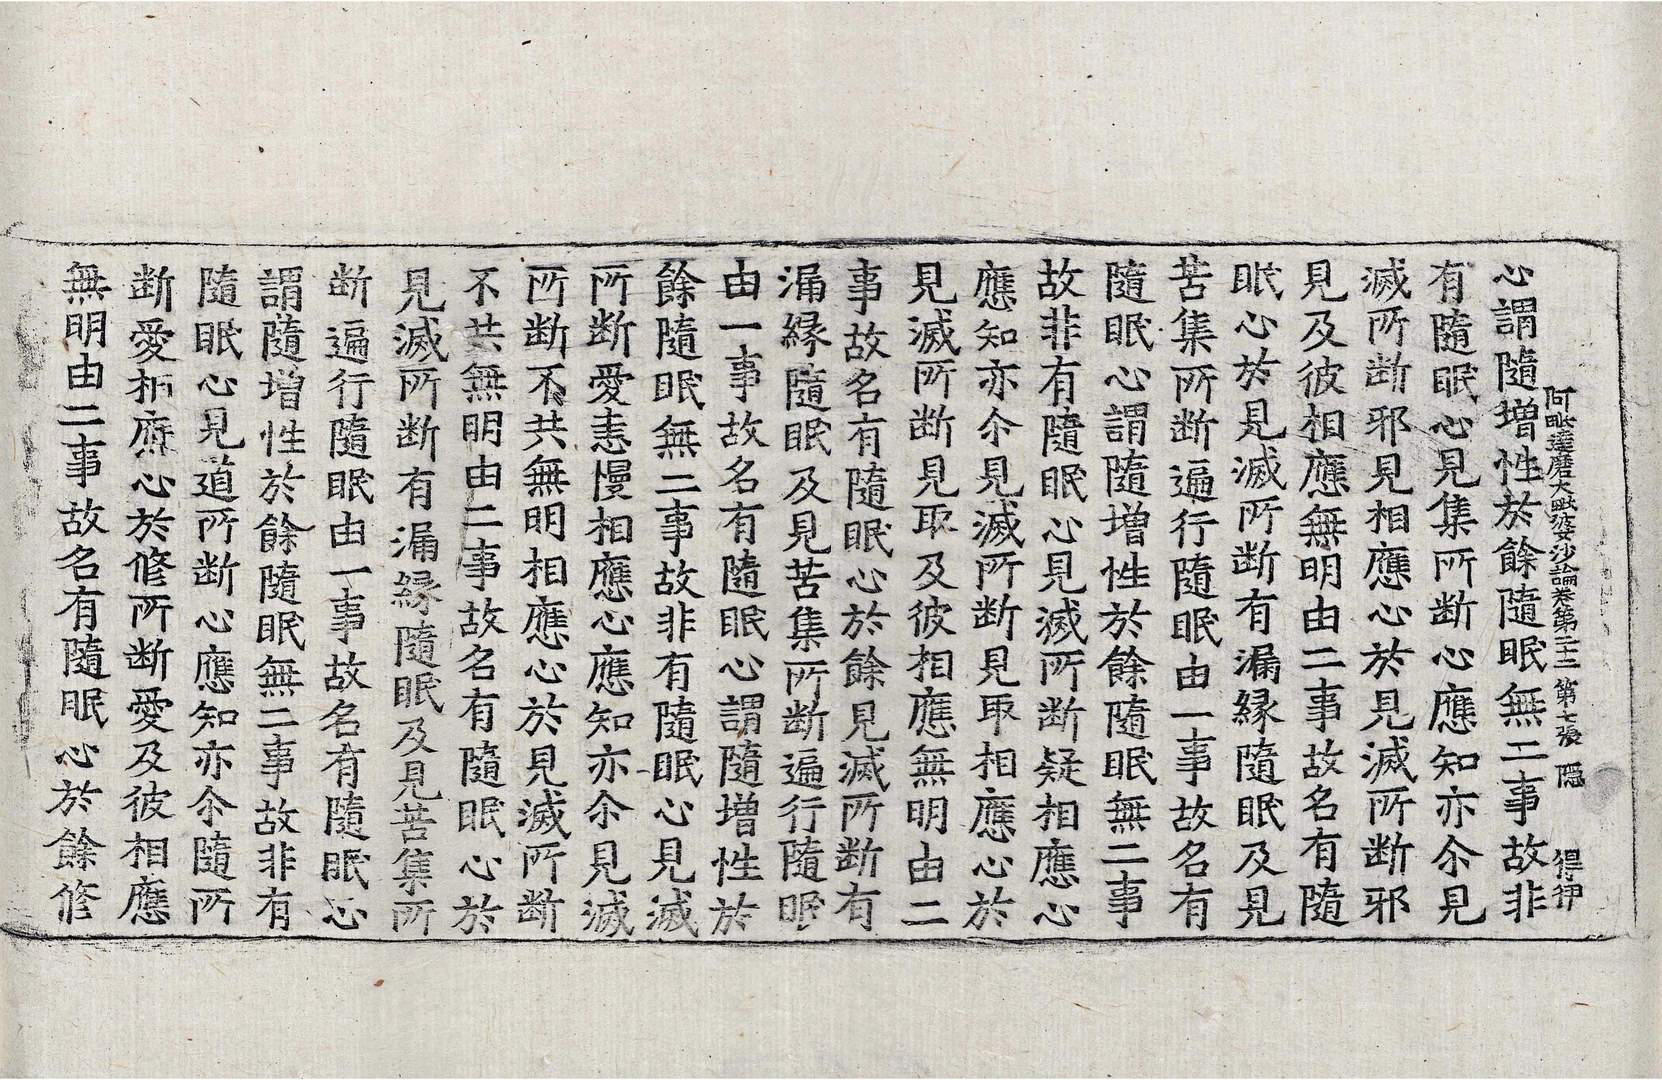 阿毗達磨大毗婆沙論卷第二十二 第七張 隱 得押
心謂隨增性於餘隨眠無二事故非
有隨眠心見集所断心應知亦尒見
滅所断邪見相應心於見滅所断邪
見及彼相應無明由二事故名有隨
眠心於見滅所断有漏緣隨眠及見
苦集所断遍行隨眠由一事故名有
隨眠心謂隨增性於餘隨眠無二事
故非有隨眠心見滅所断疑相應心
應知亦尒見滅所断見取相應心於
見滅所断見取及彼相應無明由二
事故名有隨眠心於餘見滅所断有
漏緣隨眠及見苦集所断遍行隨眠
由一事故名有隨眠心謂隨增性於
餘隨眠無二事故非有隨眠心見滅
所断愛恚慢相應心應知亦尒見滅
所断不共無明相應心於見滅所断
不共無明由二事故名有隨眠心於
見滅所断有漏緣隨眠及見苦集所
断遍行隨眠由一事故名有隨眠心
謂隨增性於餘隨眠無二事故非有
隨眠心見道所断心應知亦尒隨所
断愛相應心於修所断愛及彼相應
無明由二事故名有隨眠心於餘修